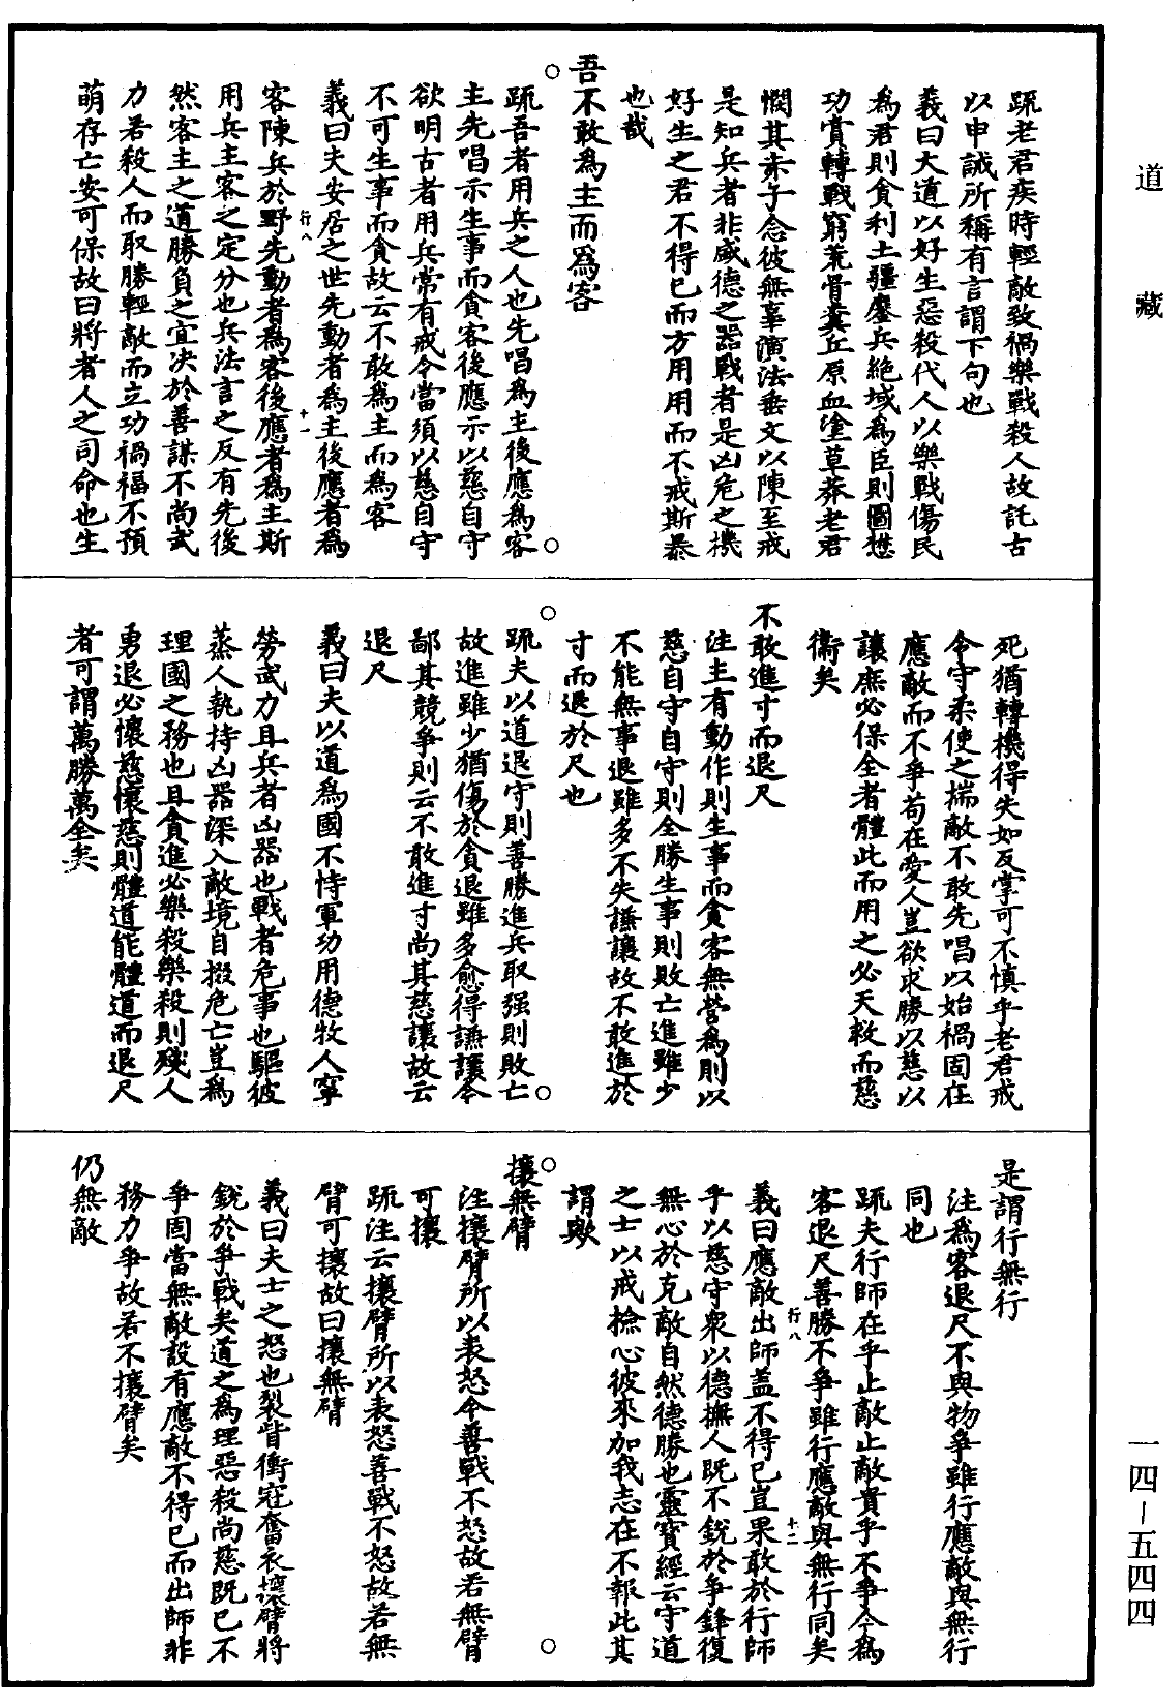 道藏
疏老君疾時輕敵致禍樂戰殺人故託古
以申誡所稱有言謂下句也
義曰大道以好生惡殺代人以樂戰傷民
為君則貪利土疆鏖兵絕域為臣則圖懋
功賞轉戰窮荒骨糞丘原血塗草莽老君
憫其赤子念彼無辜演法垂文以陳至戒
是知兵者非威德之器戰者是凶危之機
好生之君不得已而方用用而不戒斯暴
也哉
吾不敢為主而為客
疏吾者用兵之人也先唱為主後應為客
主先唱示生事而貪客後應示以慈自守
欲明古者用兵常有戒令當須以慈自守
不可生事而貪故云不敢為主而為客
義曰夫安居之世先動者為主後應者為
行八
十一
客陳兵於野先動者為客後應者為主斯
用兵主客之定分也兵法言之反有先後
然客主之道勝負之宜決於善謀不尚武
力若殺人而取勝輕敵而立功禍福不預
萌存亡安可保故曰將者人之司命也生
死猶轉機得失如反掌可不慎乎老君戒
令守柔使之揣敵不敢先唱以始禍固在
應敵而不爭苟在愛人豈欲求勝以慈以
讓庶必保全者體此而用之必天救而慈
衞矣
不敢進寸而退尺
注主有動作則生事而貪客無營為則以
慈自守自守則全勝生事則敗亡進雖少
不能無事退雖多不失謙讓故不敢進於
寸而退於尺也
疏夫以道退守則善勝進兵取强則敗亡
故進雖少猶傷於貪退雖多愈得謙讓今
鄙其競爭則云不敢進寸尚其慈讓故云
退尺
義曰夫以道為國不恃軍功用德牧人寧
勞武力且兵者凶器也戰者危事也驅彼
蒸人執持凶器深入敵境自掇危亡豈為
理國之務也且貪進必樂殺樂殺則殘人
勇退必懷慈懷慈則體道能體道而退尺
者可謂萬勝萬全矣
是謂行無行
注為客退尺不與物爭雖行應敵與無行
同也
疏夫行師在乎止敵止敵貴乎不爭今為
客退尺善勝不爭雖行應敵與無行同矣
行八
十二
義曰應敵出師蓋不得已豈果敢於行師
乎以慈守衆以德撫人既不銳於爭鋒復
無心於克敵自然德勝也靈寶經云守道
之士以戒撿心彼來加我志在不報此其
謂歟
攘無臂
注攘臂所以表怒今善戰不怒故若無臂
可攘
疏注云攘臂所以表怒善戰不怒故若無
臂可攘故曰攘無臂
義曰夫士之怒也裂眥衝冠奮衣攘臂將
銳於爭戰矣道之為理惡殺尚慈既已不
爭固當無敵設有應敵不得已而出師非
務力爭故若不攘臂矣
仍無敵
一四—五四四